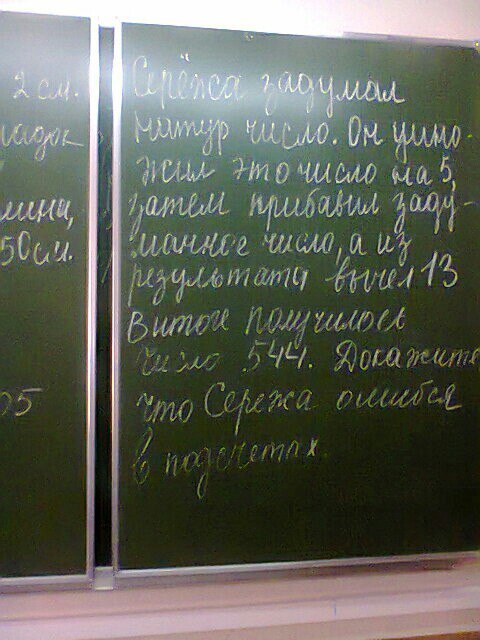 2 см.
лина,
50 см.
05
Серёжа задумал
натур число. Он умно-
жил это число на 5,
затем прибавил заду-
манное число, а из
результата вычел 13
В итоге получилось
число 544. Докажите
что Сережа ошибся
в подсчетах.